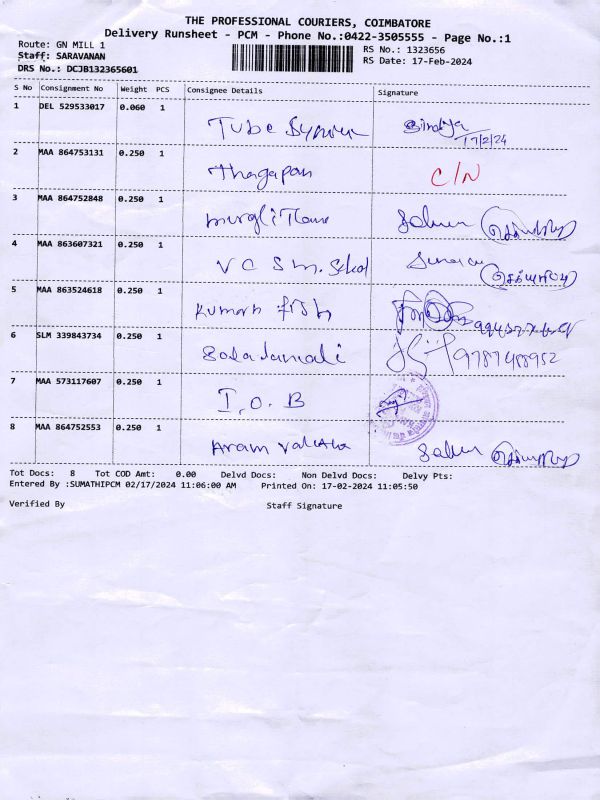 THE PROFESSIONAL COURIERS, COIMBATORE
Delivery Runsheet - PCM - Phone No.:0422-3505555 - Page No.:1
Route: GN MILL 1 RS No.: 1323656
Staff: SARAVANAN RS Date: 17-Feb-2024
DRS No.: DCJB132365601
S No Consignment No Weight PCS Consignee Details Signature
1 DEL 529533017 0.060 1
Tube
17/2/24
2 MAA 864753131 0.250 1
Thagapan C/N
3 MAA 864752848 0.250 1
4 MAA 863607321 0.250 1
V C S m. School
5 MAA 863524618 0.250 1
Kumaran fish
6 SLM 339843734 0.250 1
9787488952
7 MAA 573117607 0.250 1
I.O.B
8 MAA 864752553 0.250 1
Aram
Tot Docs: 8 Tot COD Amt: 0.00 Delvd Docs: Non Delvd Docs: Delvy Pts:
Entered By :SUMATHIPCM 02/17/2024 11:06:00 AM Printed On: 17-02-2024 11:05:50
Verified By Staff Signature